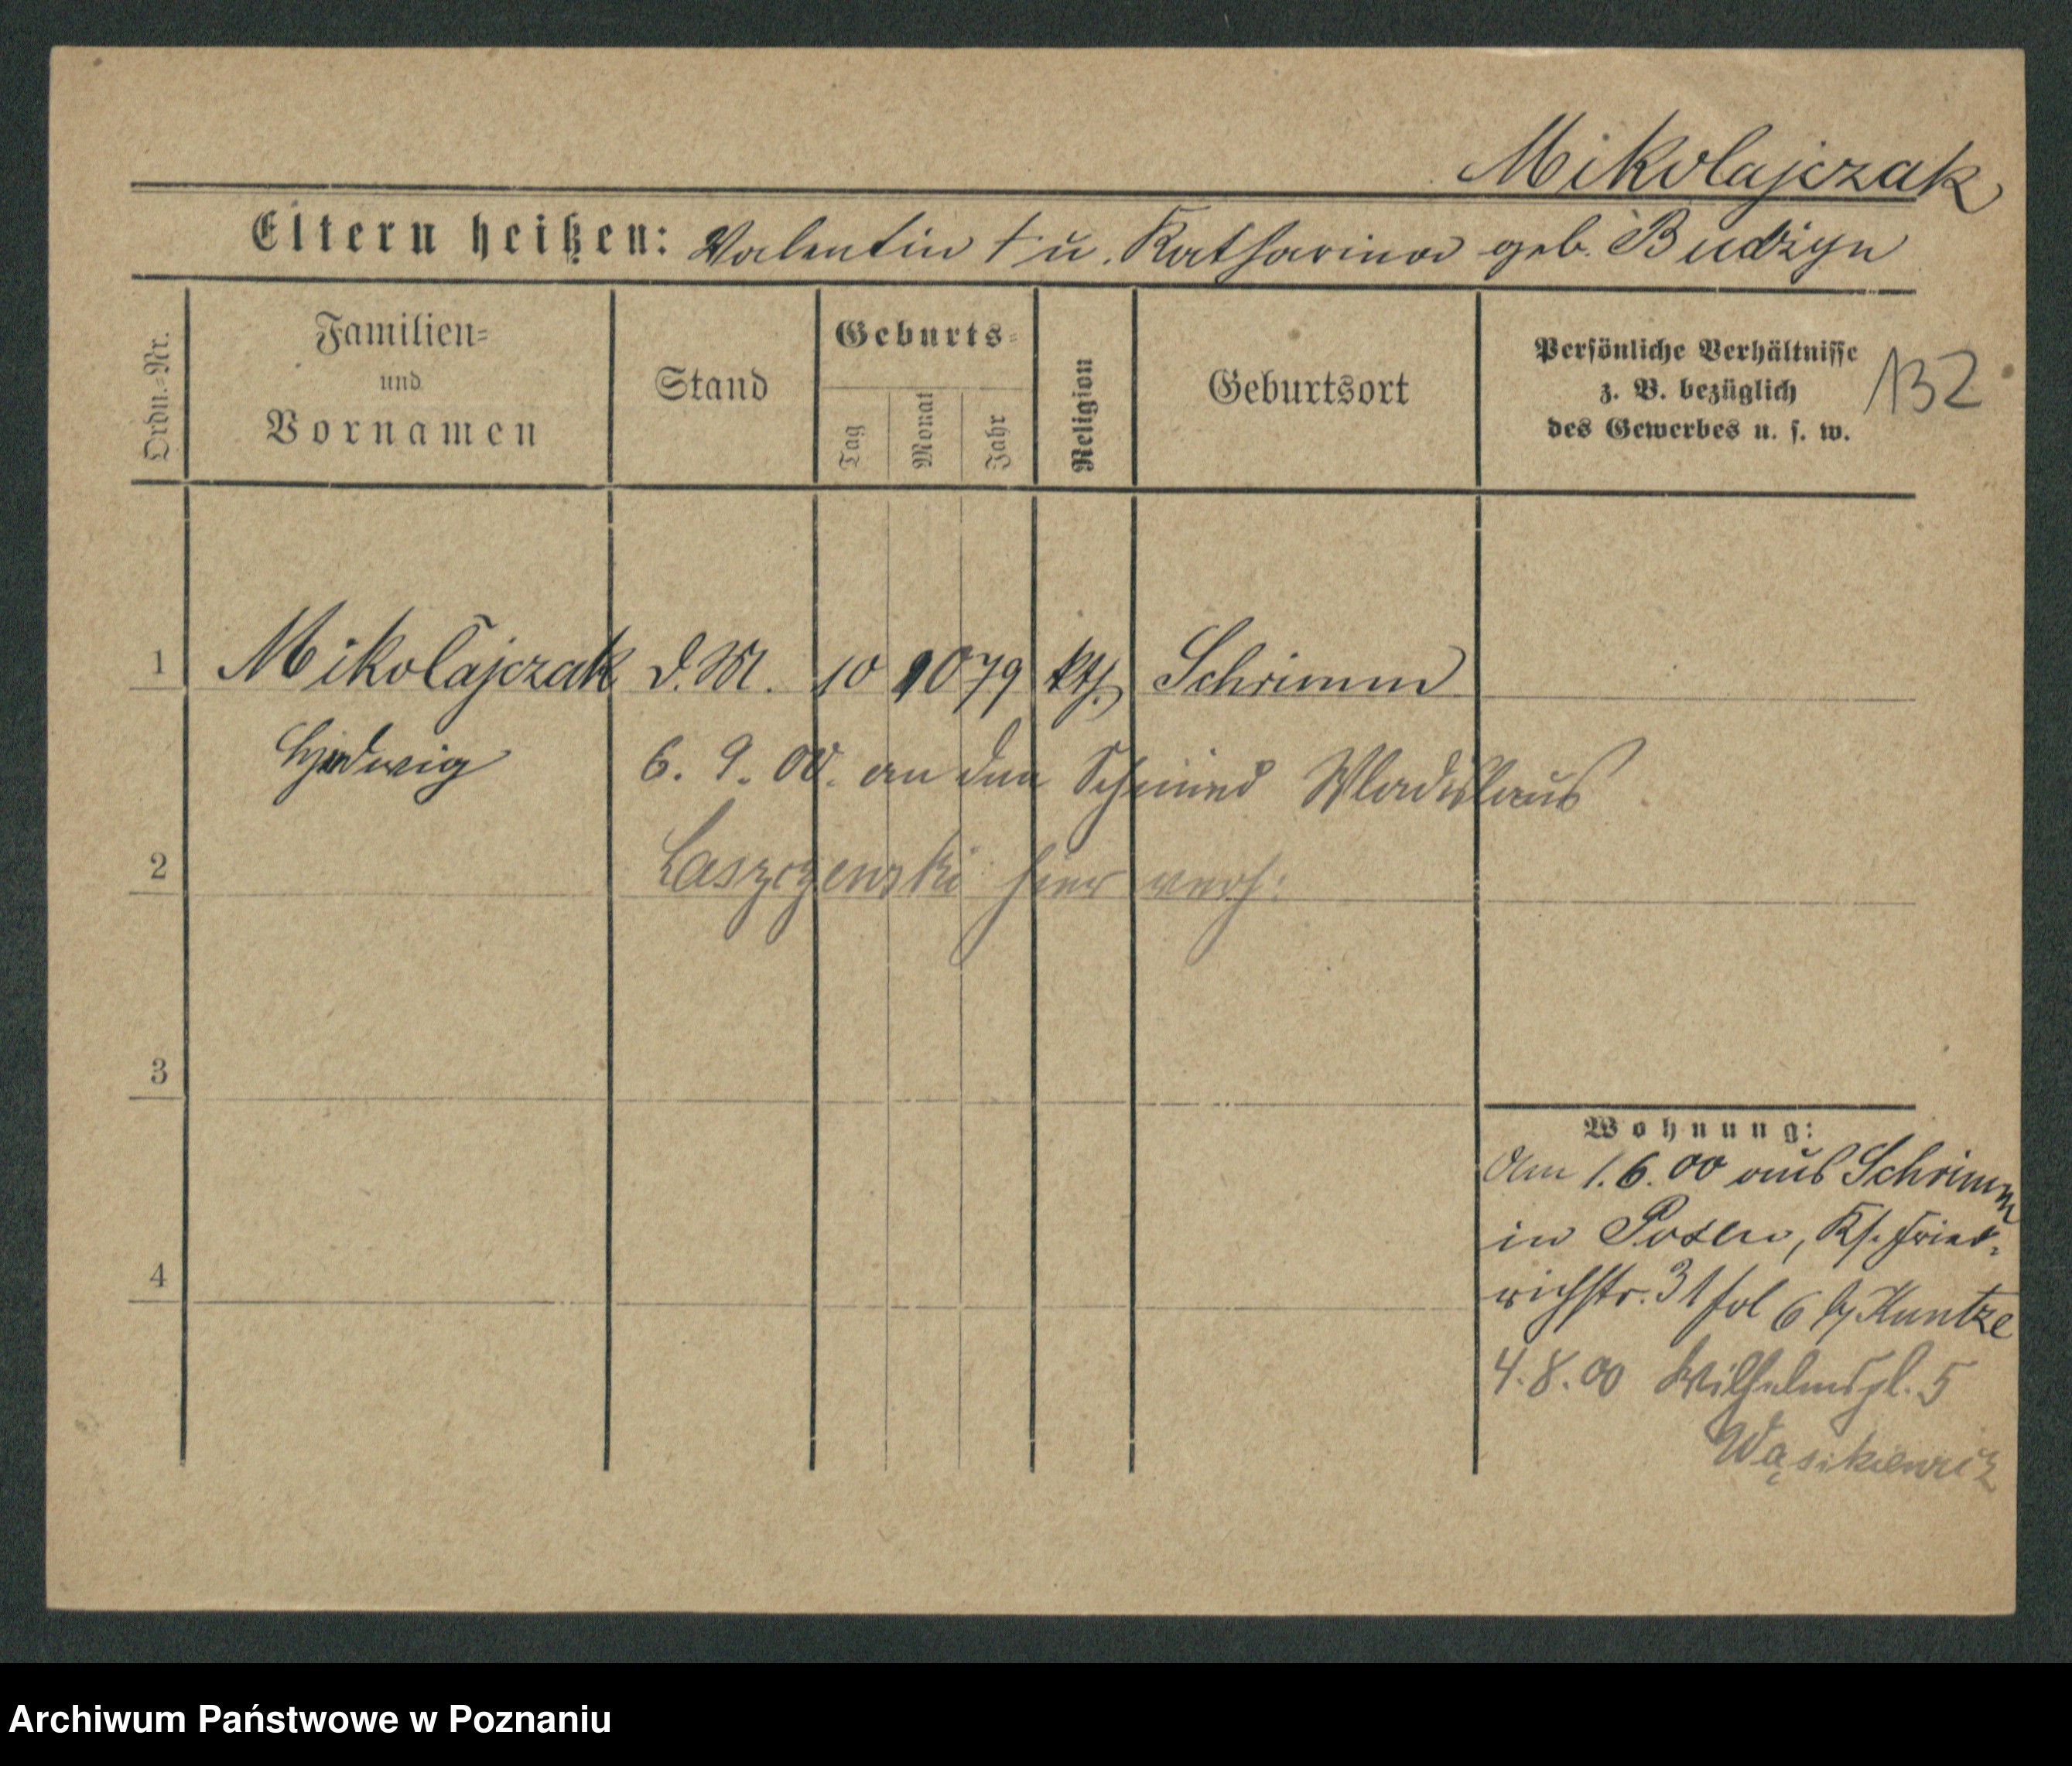 Mikolajczak
Eltern heißen: Valentin † u. Katharina geb. Budzyn
Ordn.-Nr.
Familien-
und
Vornamen
Stand
Geburts-
Tag
Monat
Jahr
Religion
Geburtsort
Persönliche Verhältnisse
z. B. bezüglich
des Gewerbes u. s. w.
132
1 Mikolajczak d. M. 10 10 79 kth. Schrimm
Hedwig 6. 9. 00. an den Schmied Wladislaus
2 Laszczenski hier verh:
3
Wohnung:
Am 1. 6. 00 aus Schrimm
in Posen, Ks. Fried-
4 richstr. 31 fol 6 b/ Kuntze
4. 8. 00 Wilhelmspl. 5
Wąsikiewicz
Archiwum Państwowe w Poznaniu